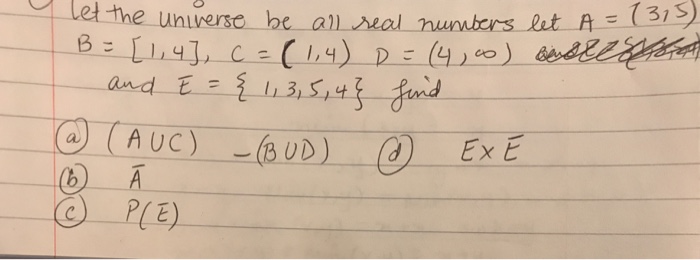 Let the universe be all real numbers let A = [3,5)
B = [1,4], C = (1,4) D = (4,∞)
and E = { 1,3,5,4} find
(a) (AUC) -(BUD) (d) E x E
(b) Ā
(c) P(E)